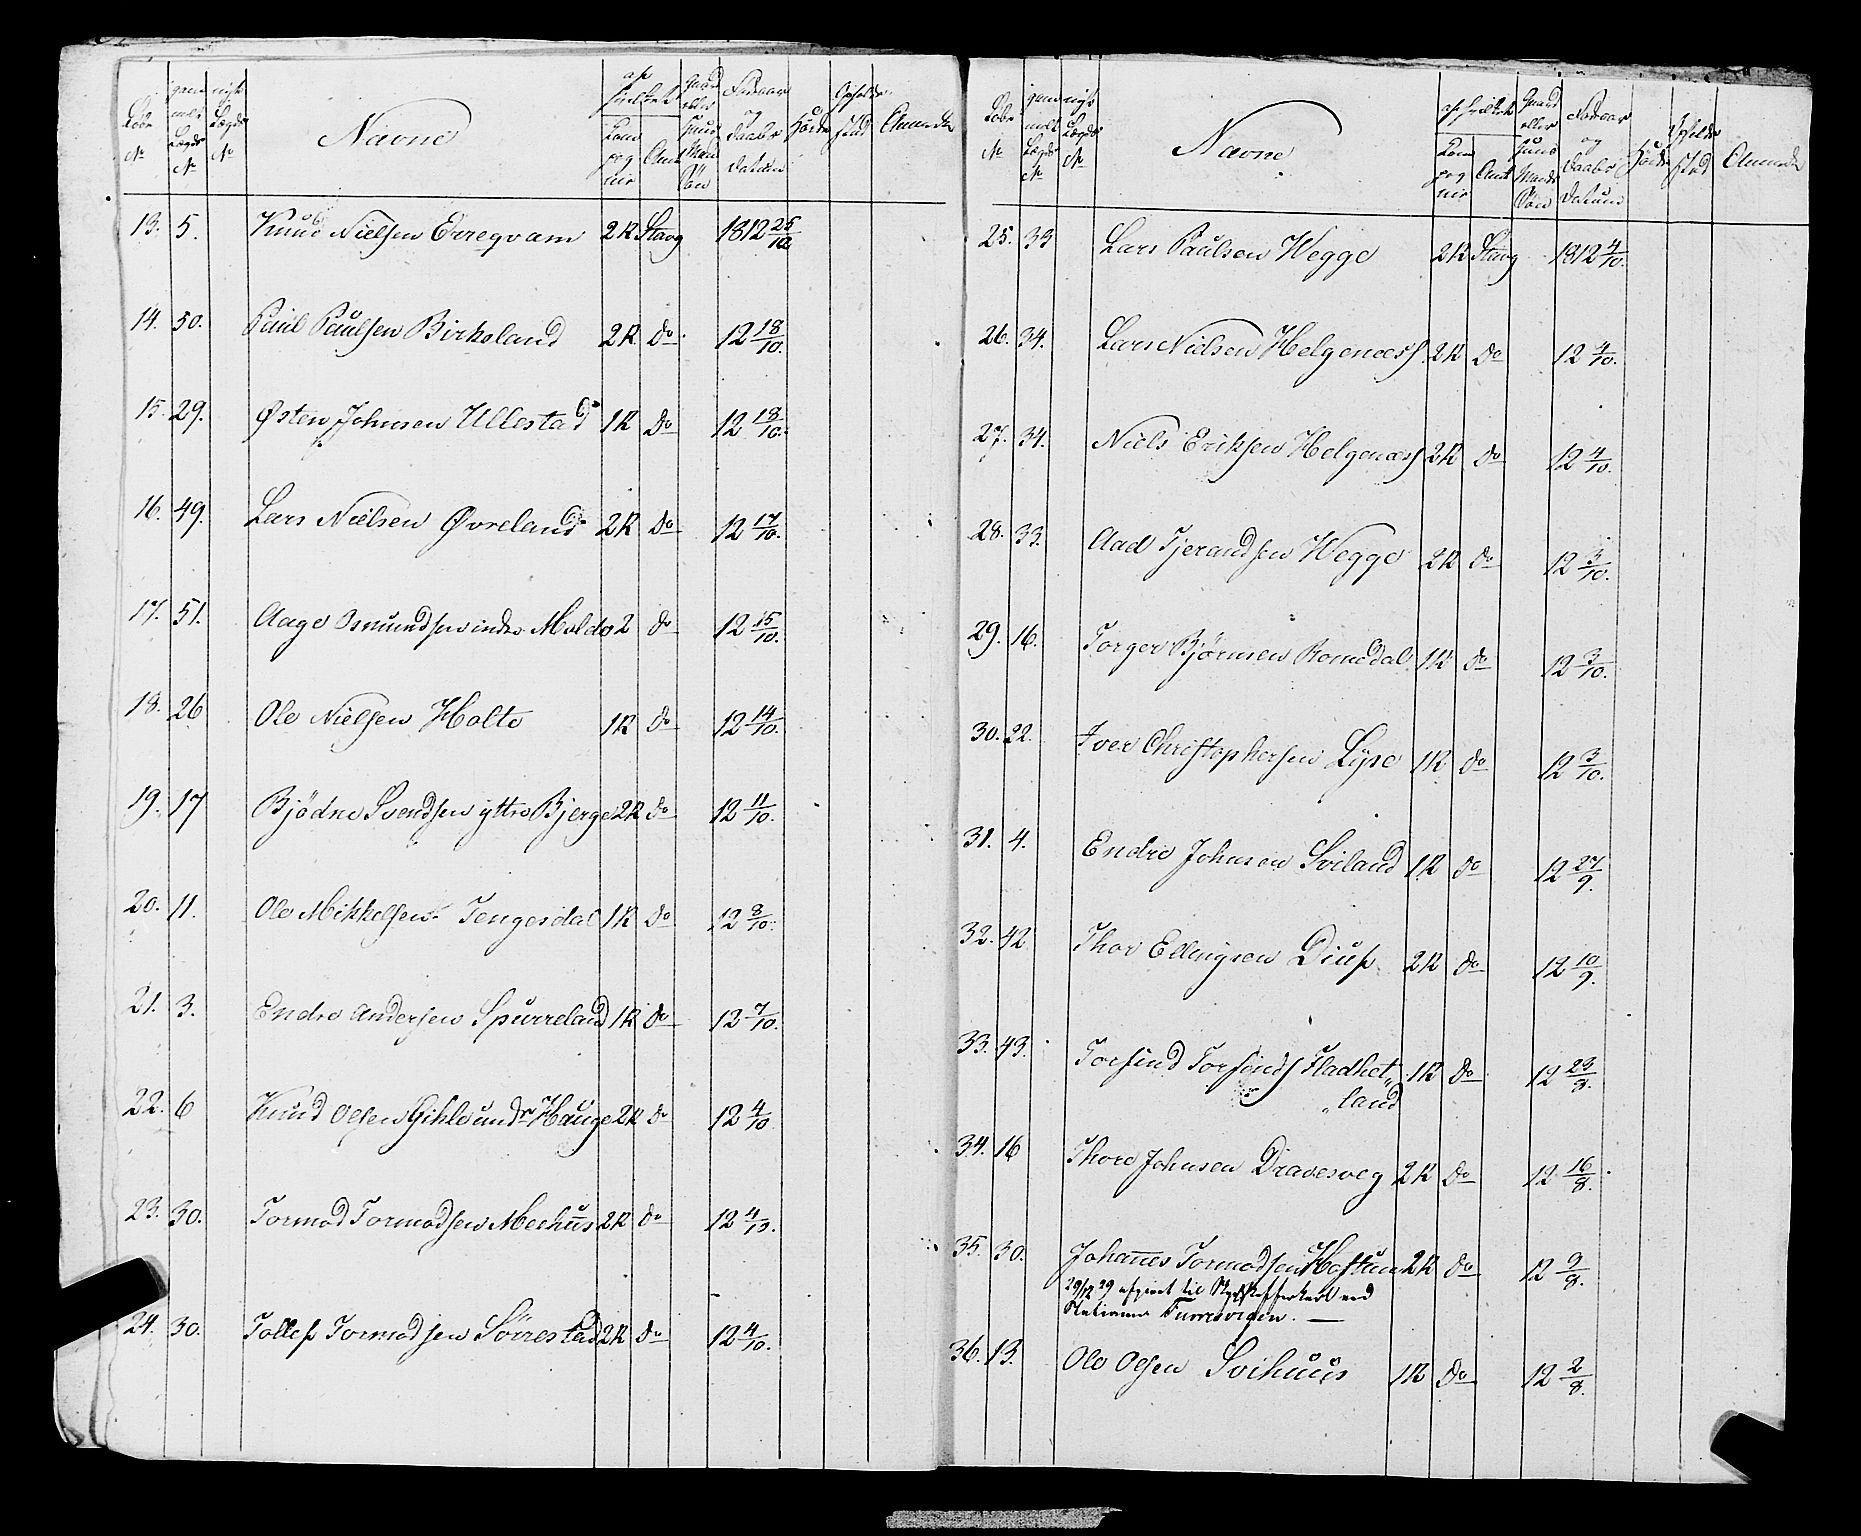 Løbe No
gammelt Lægds No
nyt Lægds No
Navne
af hvilket
Kompagnie
Amt
Gaard eller Huus Mands Søn
Fødeaar og Daabs Datum
Høide
Opholdssted
Anmærkn
13. 5. Knud Nielsen Erreqvam 2 K Stavg 1812 25/10
14. 50. Paul Paulsen Birkeland 2 K Do 12 18/10.
15. 29. Østen Johnsen Ullestad 1 K Do 12 18/10.
16. 49. Lars Nielsen Øvreland 2 K Do 12 17/10.
17. 51. Aage Osmundsen indre Molde 2 do 12 15/10.
18. 26 Ole Nielsen Holte 1 K do 12 14/10.
19. 17 Bjødne Svendsen yttre Bjerge 2 K do 12 11/10.
20. 11. Ole Mikkelsen Tengesdal 1 K do 12 8/10.
21. 3. Endre Andersen Spurreland 1 K do 12 7/10.
22. 6 Knud Olsen Gihle undr Hauge 2 K do 12 4/10
23. 30. Tormod Tormodsen Meehuus 2 K do 12 4/10.
24. 30. Tollef Tormodsen Sørrestad 2 K do 12 4/10.
Løbe No
gammelt Lægds No
nyt Lægds No
Navne
af hvilket
Kompagnie
Amt
Gaard eller Huus Mands Søn
Fødeaar og Daabs Datum
Høide
Opholdssted
Anmærkn
25. 33 Lars Paulsen Wegge 2 K Stavg 1812 4/10.
26. 34. Lars Nielsen Helgenæss 2 K Do 12 4/10.
27. 34. Niels Eriksen Helgenæss 2 K do 12 4/10.
28. 33. Aad Tjerandsen Wegge 2 K do 12 3/10.
29. 16. Torger Bjørnsen Romedal 1 K do 12 3/10.
30. 22. Iver Christophersen Lyse 1 K do 12 3/10.
31. 4. Endre Johnsen Sviland 1 K do 12 27/9.
32. 42 Thor Ellingsen Diup 2 K do 12 10/9.
33. 43. Torsind Torsinds Fladhet„
„land 1 K do 12 23/8.
34. 16 Thore Johnsen Dravesveg 2 K do 12 16/8.
35. 30. Johannes Tormodsen Hostun 2 K do 12 9/8.
29/12 29 afgivet til Skydskafferkarl ved
Stationen Tunesvigen. —
36. 13. Ole Olsen Svihuus 1 K do 12 2/8.